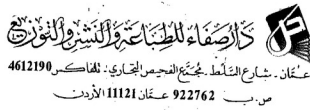 دار صفاء للطباعة والنشر والتوزيع
عمّان - شارع السلط - مجمّع الفحيص التجاري - تلفاكس 4612190
ص.ب 922762 عمّان 11121 الأردن